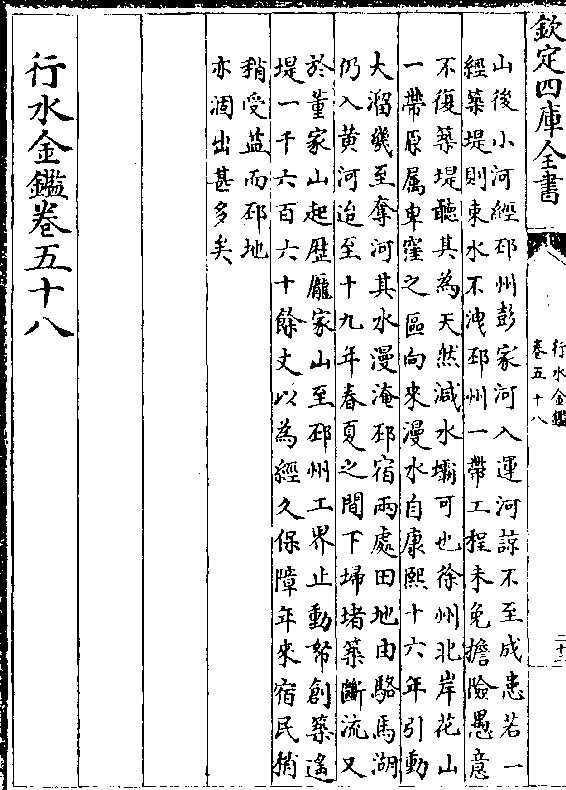 欽定四庫全書
行水金鑑
卷五十八
山後小河經邳州彭家河入運河諒不至成患若一
經築堤則東水不洩邳州一帶工程未免擔險愚意
不復築堤聽其為天然減水壩可也徐州北岸花山
一帶原属卑窪之區向來漫水自康熙十六年引動
大溜幾至奪河其水漫淹邳宿兩處田地由駱馬湖
仍入黄河迨至十九年春夏之間下埽堵築斷流又
於董家山起歴龎家山至邳州工界止動帑創築遙
堤一千六百六十餘丈以為經久保障年來宿民稍
稍受益而邳地
亦涸出甚多矣
行水金鑑卷五十八